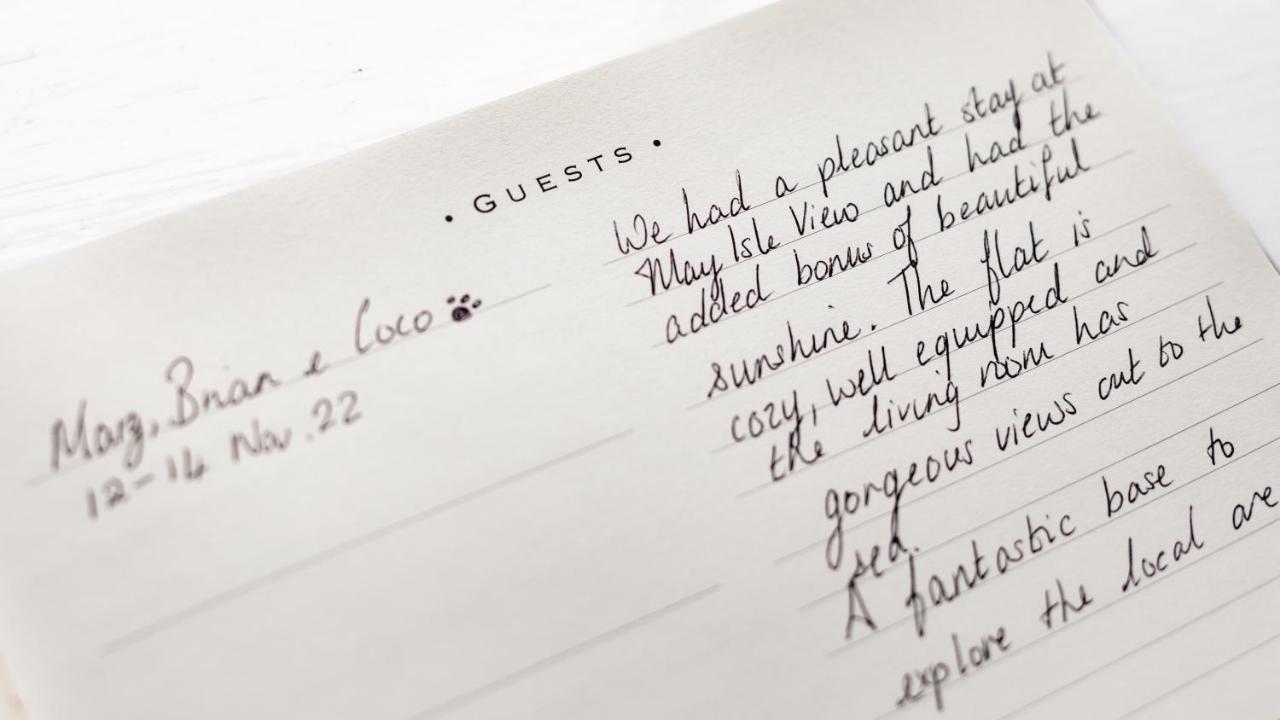 • GUESTS •
Marg, Brian & Coco
12-14 Nov. 22
We had a pleasant stay at
May Isle View and had the
added bonus of beautiful
sunshine. The flat is
cozy, well equipped and
the living room has
gorgeous views out to the
sea.
A fantastic base to
explore the local are